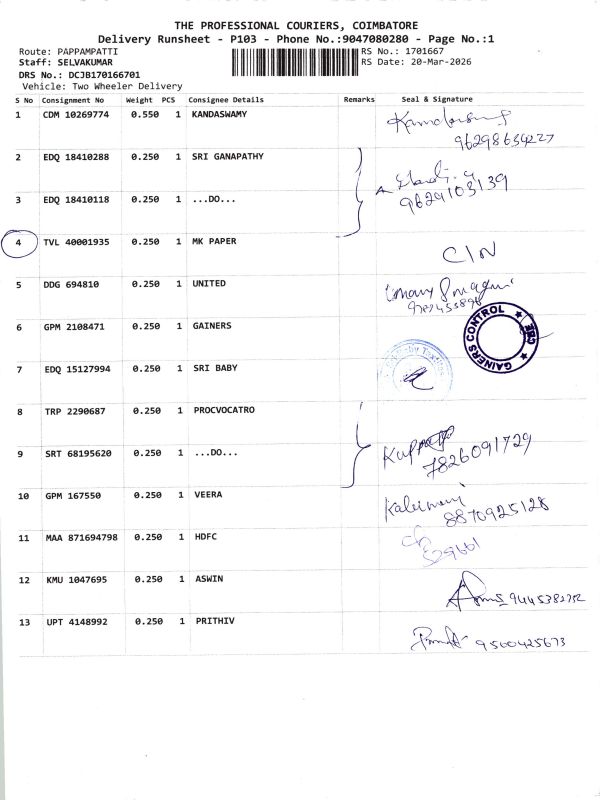 THE PROFESSIONAL COURIERS, COIMBATORE
Delivery Runsheet - P103 - Phone No.:9047080280 - Page No.:1
Route: PAPPAMPATTI RS No.: 1701667
Staff: SELVAKUMAR RS Date: 20-Mar-2026
DRS No.: DCJB170166701
Vehicle: Two Wheeler Delivery
S No Consignment No Weight PCS Consignee Details Remarks Seal & Signature
1 CDM 10269774 0.550 1 KANDASWAMY
96298634227
2 EDQ 18410288 0.250 1 SRI GANAPATHY
3 EDQ 18410118 0.250 1 ...DO...
9629103139
4 TVL 40001935 0.250 1 MK PAPER
C/N
5 DDG 694810 0.250 1 UNITED
6 GPM 2108471 0.250 1 GAINERS
GAINERS CONTROL CBE
7 EDQ 15127994 0.250 1 SRI BABY
8 TRP 2290687 0.250 1 PROCVOCATRO
9 SRT 68195620 0.250 1 ...DO...
7826091729
10 GPM 167550 0.250 1 VEERA
8870925128
11 MAA 871694798 0.250 1 HDFC
12 KMU 1047695 0.250 1 ASWIN
9445382752
13 UPT 4148992 0.250 1 PRITHIV
9500425673